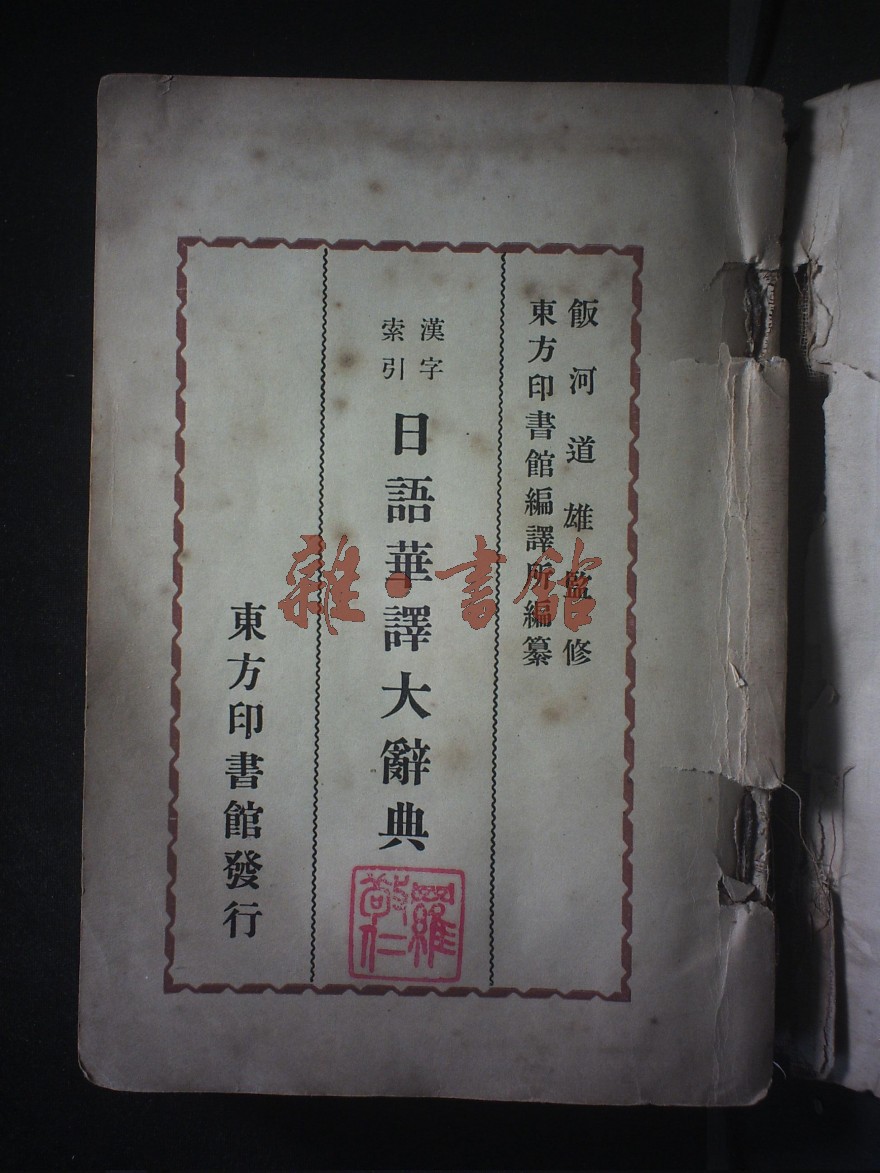 飯河道雄監修
東方印書館編譯所編纂
漢字
索引
日語華譯大辭典
東方印書館發行
羅
敬仁
雜·書館